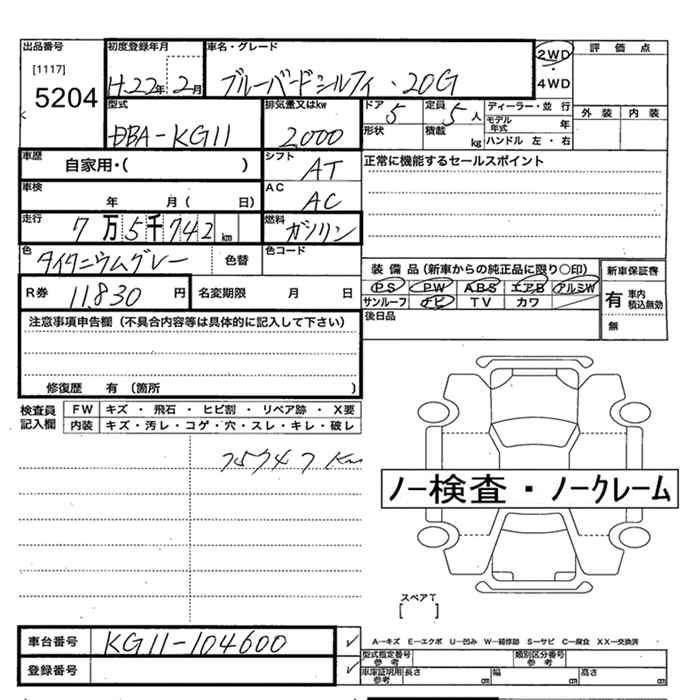 出品番号 初度登録年月 車名・グレード 2WD 評価点
[1117] H.22年 2月 ブルーバードシルフィ・20G ・
5204 4WD
型式 排気量又はkw ドア 5 定員 5人 ディーラー・並 行 外装 内装
DBA-KG11 2000 形状 積載 kg モデル年式 年
ハンドル 左・右
車歴 自家用・( ) シフト AT 正常に機能するセールスポイント
車検 年 月( 日) AC AC
走行 7万5千742km 燃料 ガソリン
色 タイタニウムグレー 色替 色コード
装備品(新車からの純正品に限り○印) 新車保証書
R券 11.830円 名変期限 月 日 PS PW ABS エアB アルミW 有 車内積込無効
サンルーフ ナビ TV カワ
注意事項申告欄(不具合内容等は具体的に記入して下さい) 後日品 無
修復歴 有(箇所 )
検査員記入欄 FW キズ・飛石・ヒビ割・リペア跡・X要
内装 キズ・汚レ・コゲ・穴・スレ・キレ・破レ
75747Km
ノー検査・ノークレーム
スペアT
[ ]
車台番号 KG11-104600 A-キズ E-エクボ U-凹み W-補修跡 S-サビ C-腐食 XX-交換済
型式指定番号 参考 類別区分番号 参考
登録番号 車庫証明用 参考 長さ cm 幅 cm 高さ cm